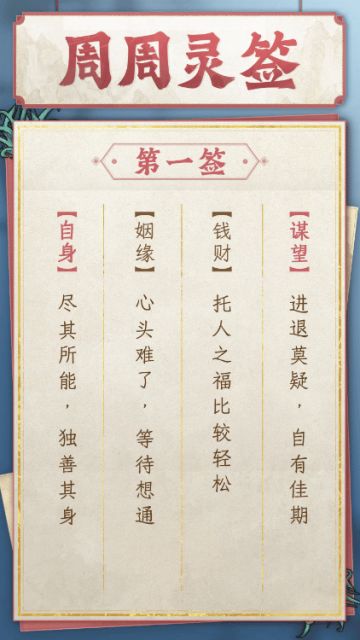 周周灵签
第一签
【谋望】进退莫疑，自有佳期
【钱财】托人之福比较轻松
【姻缘】心头难了，等待想通
【自身】尽其所能，独善其身